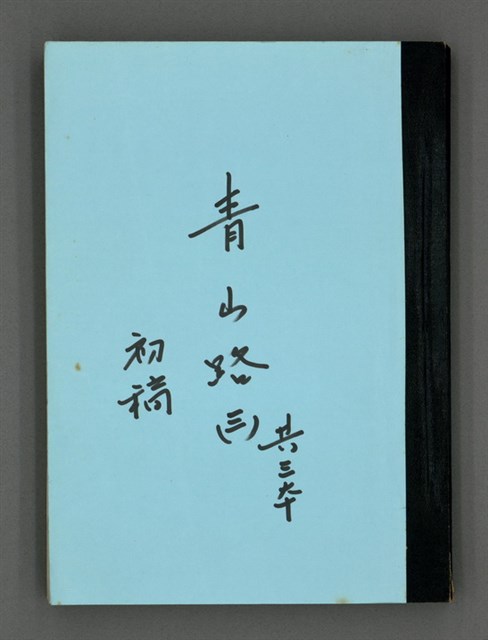 青山路(三)
共三本
初稿